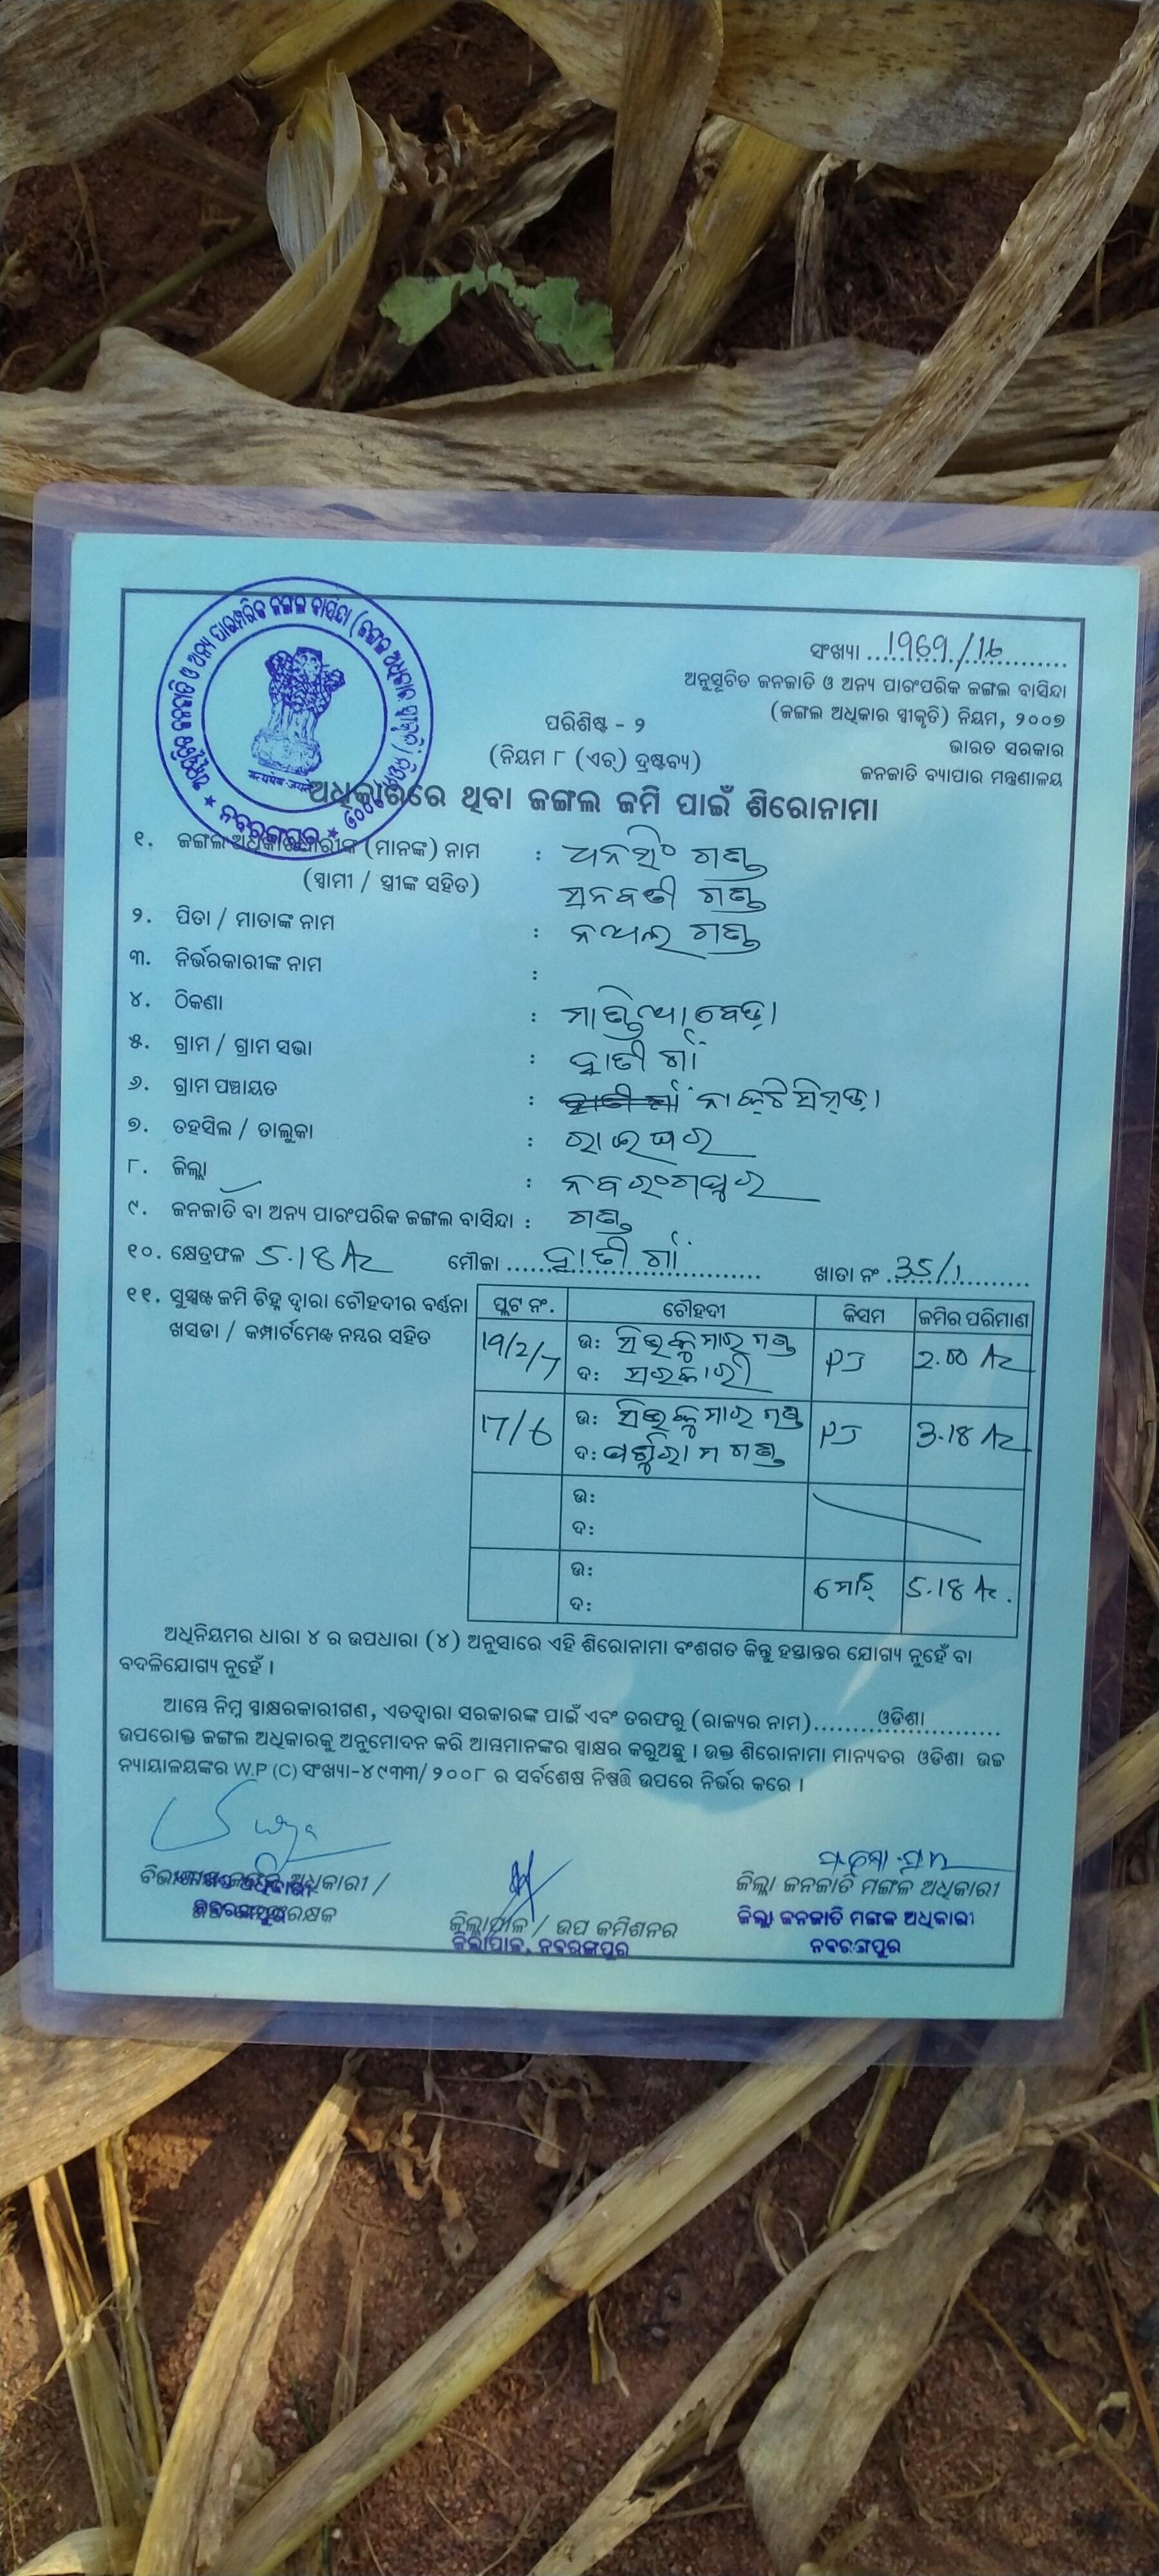 ଅନୁସୂଚିତ ଜନଜାତି ଓ ଅନ୍ୟ ପାରଂପରିକ ଜଙ୍ଗଲ ବାସିନ୍ଦା (ଜଙ୍ଗଲ ଅଧିକାର ସ୍ୱୀକୃତି) ନିୟମ
ନବରଙ୍ଗପୁର
ସଂଖ୍ୟା 1969/16
ଅନୁସୂଚିତ ଜନଜାତି ଓ ଅନ୍ୟ ପାରଂପରିକ ଜଙ୍ଗଲ ବାସିନ୍ଦା
(ଜଙ୍ଗଲ ଅଧିକାର ସ୍ୱୀକୃତି) ନିୟମ, ୨୦୦୭
ଭାରତ ସରକାର
ଜନଜାତି ବ୍ୟାପାର ମନ୍ତ୍ରଣାଳୟ
ପରିଶିଷ୍ଟ - ୨
(ନିୟମ ୮ (ଏଚ୍) ଦ୍ରଷ୍ଟବ୍ୟ)
ଅଧିକାରରେ ଥିବା ଜଙ୍ଗଲ ଜମି ପାଇଁ ଶିରୋନାମା
୧. ଜଙ୍ଗଲ ଅଧିକାରଧାରୀଙ୍କ (ମାନଙ୍କ) ନାମ : ଧନସିଂ ଗଣ୍ଡ
(ସ୍ୱାମୀ / ସ୍ତ୍ରୀଙ୍କ ସହିତ) ଗଣ୍ଡ
୨. ପିତା / ମାତାଙ୍କ ନାମ : ଗଣ୍ଡ
୩. ନିର୍ଭରକାରୀଙ୍କ ନାମ :
୪. ଠିକଣା :
୫. ଗ୍ରାମ / ଗ୍ରାମ ସଭା : ହାତୀ ଗାଁ
୬. ଗ୍ରାମ ପଞ୍ଚାୟତ :
୭. ତହସିଲ / ତାଲୁକା : ରାଇଘର
୮. ଜିଲ୍ଲା : ନବରଂଗପୁର
୯. ଜନଜାତି ବା ଅନ୍ୟ ପାରଂପରିକ ଜଙ୍ଗଲ ବାସିନ୍ଦା : ଗଣ୍ଡ
୧୦. କ୍ଷେତ୍ରଫଳ 5.18 Ac ମୌଜା ହାତୀ ଗାଁ ଖାତା ନଂ 35/1
୧୧. ସୁସ୍ପଷ୍ଟ ଜମି ଚିହ୍ନ ଦ୍ୱାରା ଚୌହଦୀର ବର୍ଣ୍ଣନା
ଖସଡା / କମ୍ପାର୍ଟମେଣ୍ଟ ନମ୍ବର ସହିତ
ପ୍ଲଟ ନଂ. ଚୌହଦୀ କିସମ ଜମିର ପରିମାଣ
19/2/7 ଉ: ଶିବକୁମାର ଗଣ୍ଡ PJ 2.00 Ac
ଦ: ସରକାରୀ
17/6 ଉ: ଶିବକୁମାର ଗଣ୍ଡ PJ 3.18 Ac
ଦ: ଗଣ୍ଡ
ଉ:
ଦ:
ଉ: ମୋଟ୍ 5.18 Ac.
ଦ:
ଅଧିନିୟମର ଧାରା ୪ ର ଉପଧାରା (୪) ଅନୁସାରେ ଏହି ଶିରୋନାମା ବଂଶଗତ କିନ୍ତୁ ହସ୍ତାନ୍ତର ଯୋଗ୍ୟ ନୁହେଁ ବା
ବଦଳିଯୋଗ୍ୟ ନୁହେଁ ।
ଆମ୍ଭେ ନିମ୍ନ ସ୍ୱାକ୍ଷରକାରୀଗଣ, ଏତଦ୍ୱାରା ସରକାରଙ୍କ ପାଇଁ ଏବଂ ତରଫରୁ (ରାଜ୍ୟର ନାମ) ଓଡିଶା
ଉପରୋକ୍ତ ଜଙ୍ଗଲ ଅଧିକାରକୁ ଅନୁମୋଦନ କରି ଆମ୍ଭମାନଙ୍କର ସ୍ୱାକ୍ଷର କରୁଅଛୁ । ଉକ୍ତ ଶିରୋନାମା ମାନ୍ୟବର ଓଡିଶା ଉଚ୍ଚ
ନ୍ୟାୟାଳୟଙ୍କର W.P (C) ସଂଖ୍ୟା-୪୯୩୩/୨୦୦୮ ର ସର୍ବଶେଷ ନିଷ୍ପତ୍ତି ଉପରେ ନିର୍ଭର କରେ ।
ଅଧିକାରୀ /
ନବରଙ୍ଗପୁର
ଜିଲ୍ଲାପାଳ / ଉପ କମିଶନର
ଜିଲାପାଳ, ନବରଙ୍ଗପୁର
ଜିଲ୍ଲା ଜନଜାତି ମଙ୍ଗଳ ଅଧିକାରୀ
ଜିଲ୍ଲା ଜନଜାତି ମଙ୍ଗଳ ଅଧିକାରୀ
ନବରଙ୍ଗପୁର